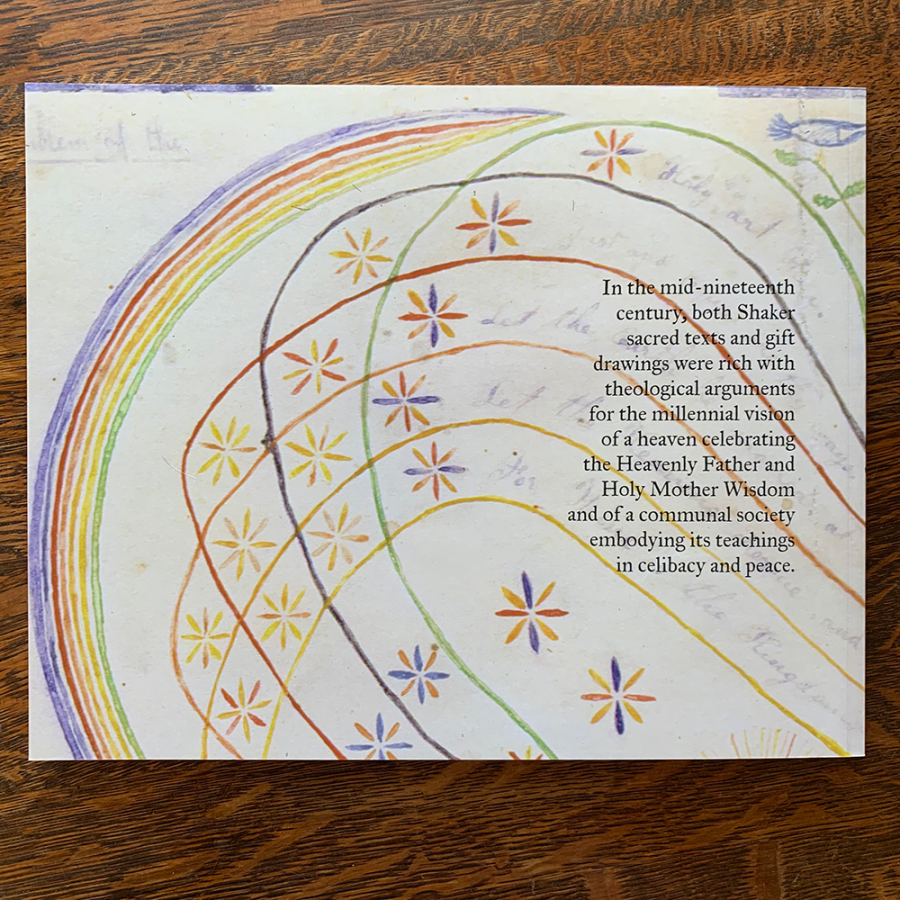 of the
Holy, and
In the mid-nineteenth
century, both Shaker
sacred texts and gift
drawings were rich with
theological arguments
for the millennial vision
of a heaven celebrating
the Heavenly Father and
Holy Mother Wisdom
and of a communal society
embodying its teachings
in celibacy and peace.
Let the
Let the
For
and
the Kingdom